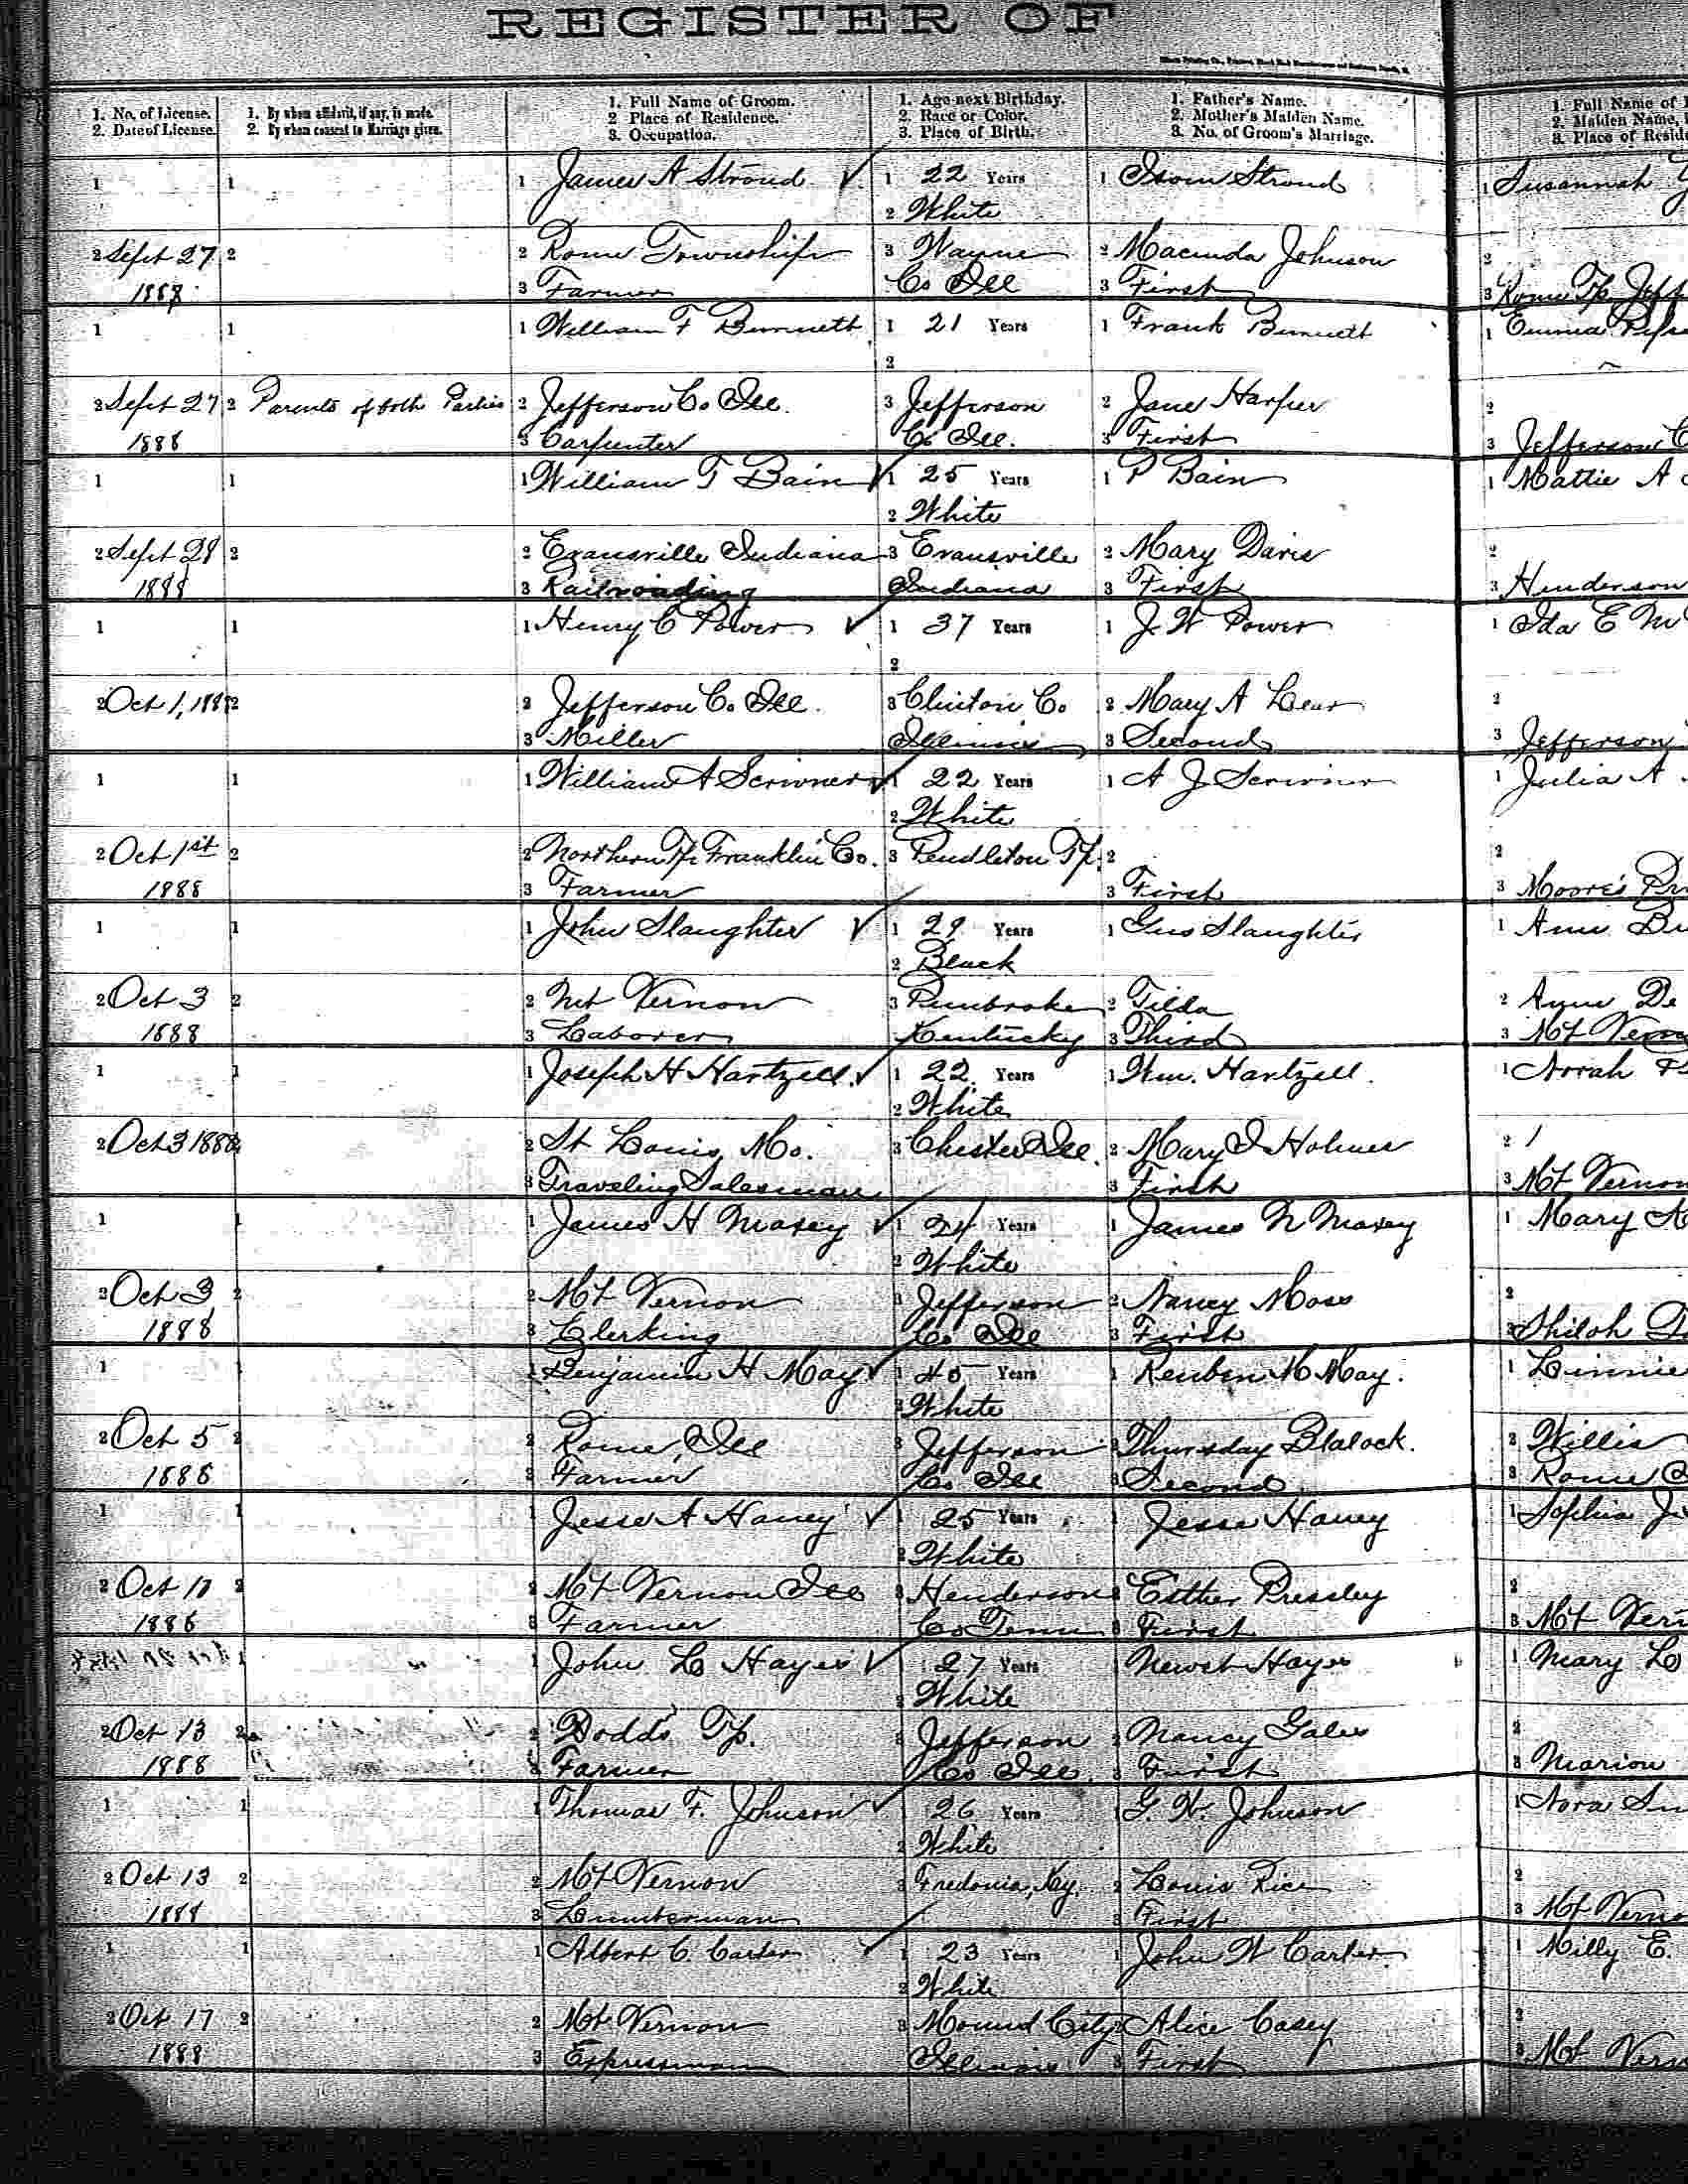 REGISTER OF
1. No. of License. 1. By whom affidavit, if any, is made. 1. Full Name of Groom. 1. Age next Birthday. 1. Father's Name. 1. Full Name of
2. Date of License. 2. By whom consent to Marriage given. 2 Place of Residence. 2. Race or Color. 2. Mother's Maiden Name. 2. Maiden Name,
3. Occupation. 3. Place of Birth. 3. No. of Groom's Marriage. 3. Place of
1 1 1 James A Stroud ✓ 1 22 Years 1 Isom Stroud 1 Susannah
2 White
2 Sept 27 2 2 Rome Township 3 Wayne 2 Macinda Johnson 2
1888 3 Farmer Co Ill 3 First 3 Rome Tp Jeff
1 1 1 William F Bumett 1 21 Years 1 Frank Bumett 1 Emma
2
2 Sept 27 2 Parents of both Parties 2 Jefferson Co Ill. 3 Jefferson 2 Jane Harper 2
1888 3 Carpenter Co Ill. 3 First 3 Jefferson C
1 1 1 William T Bain ✓ 1 25 Years 1 P Bain 1 Mattie A
2 White
2 Sept 28 2 2 Evansville Indiana 3 Evansville 2 Mary Davis 2
1888 3 Railroading Indiana 3 First 3 Henderson
1 1 1 Henry C Power ✓ 1 37 Years 1 J. W Power 1 Ida E M
2
2 Oct 1, 1888 2 2 Jefferson Co Ill. 3 Clinton Co 2 Mary A Lear 2
3 Miller Illinois 3 Second 3 Jefferson
1 1 1 William A Scrivner ✓ 1 22 Years 1 A J Scrivner 1 Julia A
2 White
2 Oct 1st 2 2 Northern Tp Franklin Co. 3 Pendleton Tp. 2 2
1888 3 Farmer 3 First 3 Moore's Pr
1 1 1 John Slaughter ✓ 1 29 Years 1 Gus Slaughter 1
2 Black
2 Oct 3 2 2 Mt Vernon 3 Pembroke 2 Tilda 2 De
1888 3 Laborer Kentucky 3 Third 3 Mt Verno
1 1 1 Joseph H Hartzell. ✓ 1 22 Years 1 Wm. Hartzell. 1 Norah
2 White
2 Oct 3 1888 2 St Louis, Mo. 3 Chester Ill. 2 Mary I Holmes 2
3 Traveling Salesman 3 First 3 Mt Vernon
1 1 1 James H Maxey ✓ 1 24 Years 1 James N Maxey 1 Mary A
2 White
2 Oct 3 2 2 Mt Vernon 3 Jefferson 2 Nancy Moss 2
1888 3 Clerking Co Ill 3 First 3 Shiloh
1 1 1 Benjamin H May ✓ 1 40 Years 1 Reuben M May. 1 Linnie
2 White
2 Oct 5 2 2 Rome, Ill 3 Jefferson 2 Thursday Blalock. 2 Willis
1888 3 Farmer Co Ill 3 Second 3 Rome
1 1 1 Jesse A Haney ✓ 1 25 Years 1 Jesse Haney 1 Sophia
2 White
2 Oct 10 2 2 Mt Vernon Ill 3 Henderson 2 Esther Pressley 2
1888 3 Farmer Co Tenn 3 First 3 Mt Vern
1 1 John L Hayes ✓ 1 27 Years Hayes 1 Mary L
2 White
2 Oct 13 2 2 Dodds Tp. 3 Jefferson 2 Nancy Gales 2
1888 3 Farmer Co Ill. 3 First 3 Marion
1 1 1 Thomas F. Johnson ✓ 1 26 Years 1 G. W. Johnson 1 Nora
2 White
2 Oct 13 2 2 Mt Vernon 3 Fredonia, Ky. 2 Louis Rice 2
1888 3 Lumberman 3 First 3 Mt Verno
1 1 1 Albert C. Carter ✓ 1 23 Years 1 John W Carter 1 Milly E.
2 White
2 Oct 17 2 2 Mt Vernon 3 Mound City 2 Alice Casey 2
1888 3 Expressman Illinois 3 First 3 Mt Vern